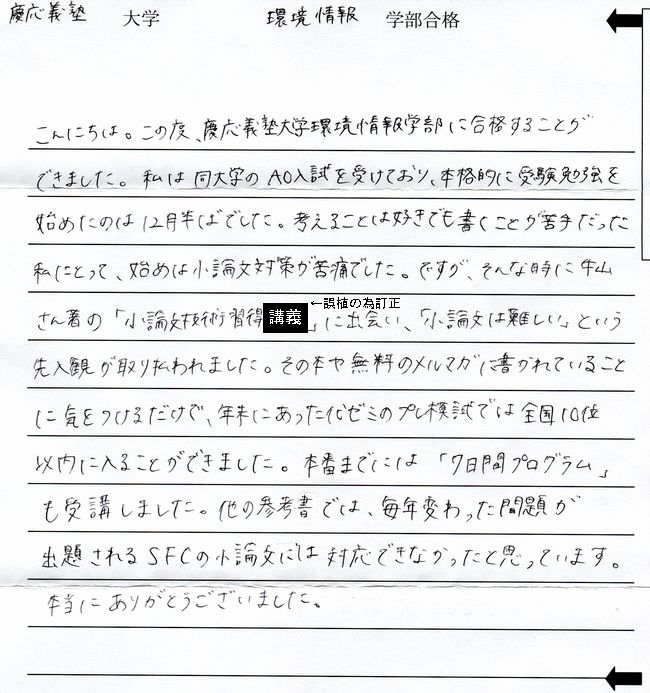 慶応義塾 大学 環境情報 学部合格
こんにちは。この度、慶応義塾大学環境情報学部に合格することが
できました。私は同大学のAO入試を受けており、本格的に受験勉強を
始めたのは12月半ばでした。考えることは好きでも書くことが苦手だった
私にとって、始めは小論文対策が苦痛でした。ですが、そんな時に牛山
←誤植の為訂正
さん著の「小論文技術習得講義」に出会い、「小論文は難しい」という
先入観が取り払われました。その本や無料のメルマガに書かれていること
に気をつけるだけで、年末にあった代ゼミのプレ模試では全国10位
以内に入ることができました。本番までには「7日間プログラム」
も受講しました。他の参考書では、毎年変わった問題が
出題されるSFCの小論文には対応できなかったと思っています。
本当にありがとうございました。